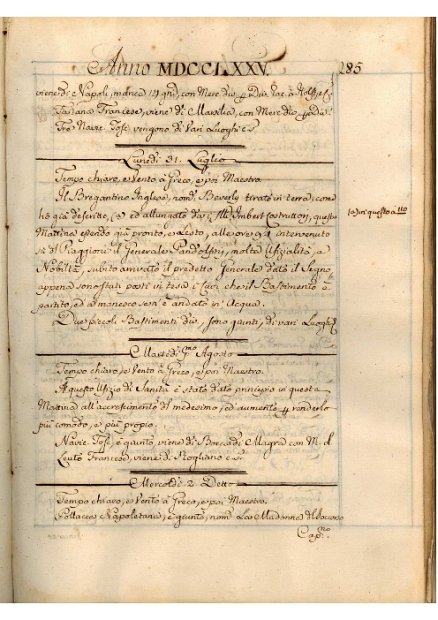 Anno MDCCLXXV. 285
viene di Napoli, manca 19 gni, con Merc. div. p
Tartana Francese, viene di Marsilia, con Merc. div.
Tre Navic. Tose. vengono di Vari Luoghi
Lunedì 31. Luglio
Tempo chiaro, e Vento à Greco, e poi Maestro.
Il Bregantino Inglese, nom. Beverly tirato in terra, come
hò già descritto, (a) ed allungato da Imbert Costruttori, questa
Mattina essendo già pronto, e Lesto, alle ore 9½ intervenuto
il Generale Pandolfini, molta Ufizialità, e
Nobiltà, subito arrivato il predetto Generale dato il Segno,
appena sono stati posti in tesa i Cavi, che il Bastimento è
partito, ed a manesco sen' è andato in Acqua.
Due piccoli Bastimenti div. sono giunti, di vari Luoghi
(a) in questo a 110
Martedì Pmo Agosto
Tempo chiaro, e Vento à Greco, e poi Maestro.
A questo Ufizio di Sanità è stato dato principio in questa
Mattina all'accrescimento del medesimo, ed aumento p renderlo
più comodo, e più proprio.
Navic. Tose. è giunto, viene di Bocca di Magra con M. d.
Leuto Francese, viene di Rogliano
Mercoldì 2 Detto
Tempo chiaro, e Vento à Greco, e poi Maestro.
Pollacca Napoletana, è giunta, nom. La Madonna del Soccorso
Capno